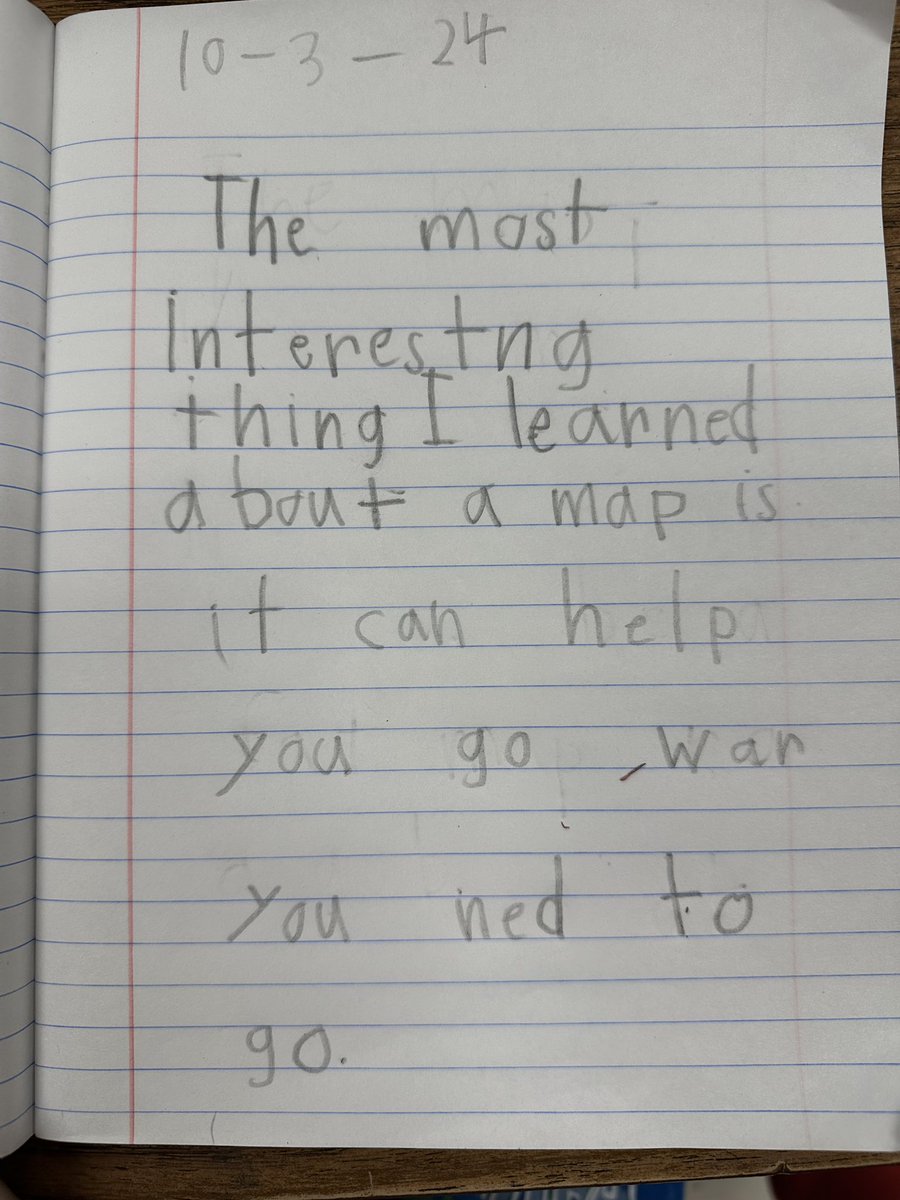 10-3-24
The most
interestng
thing I learned
about a map is
it can help
you go war
you ned to
go.